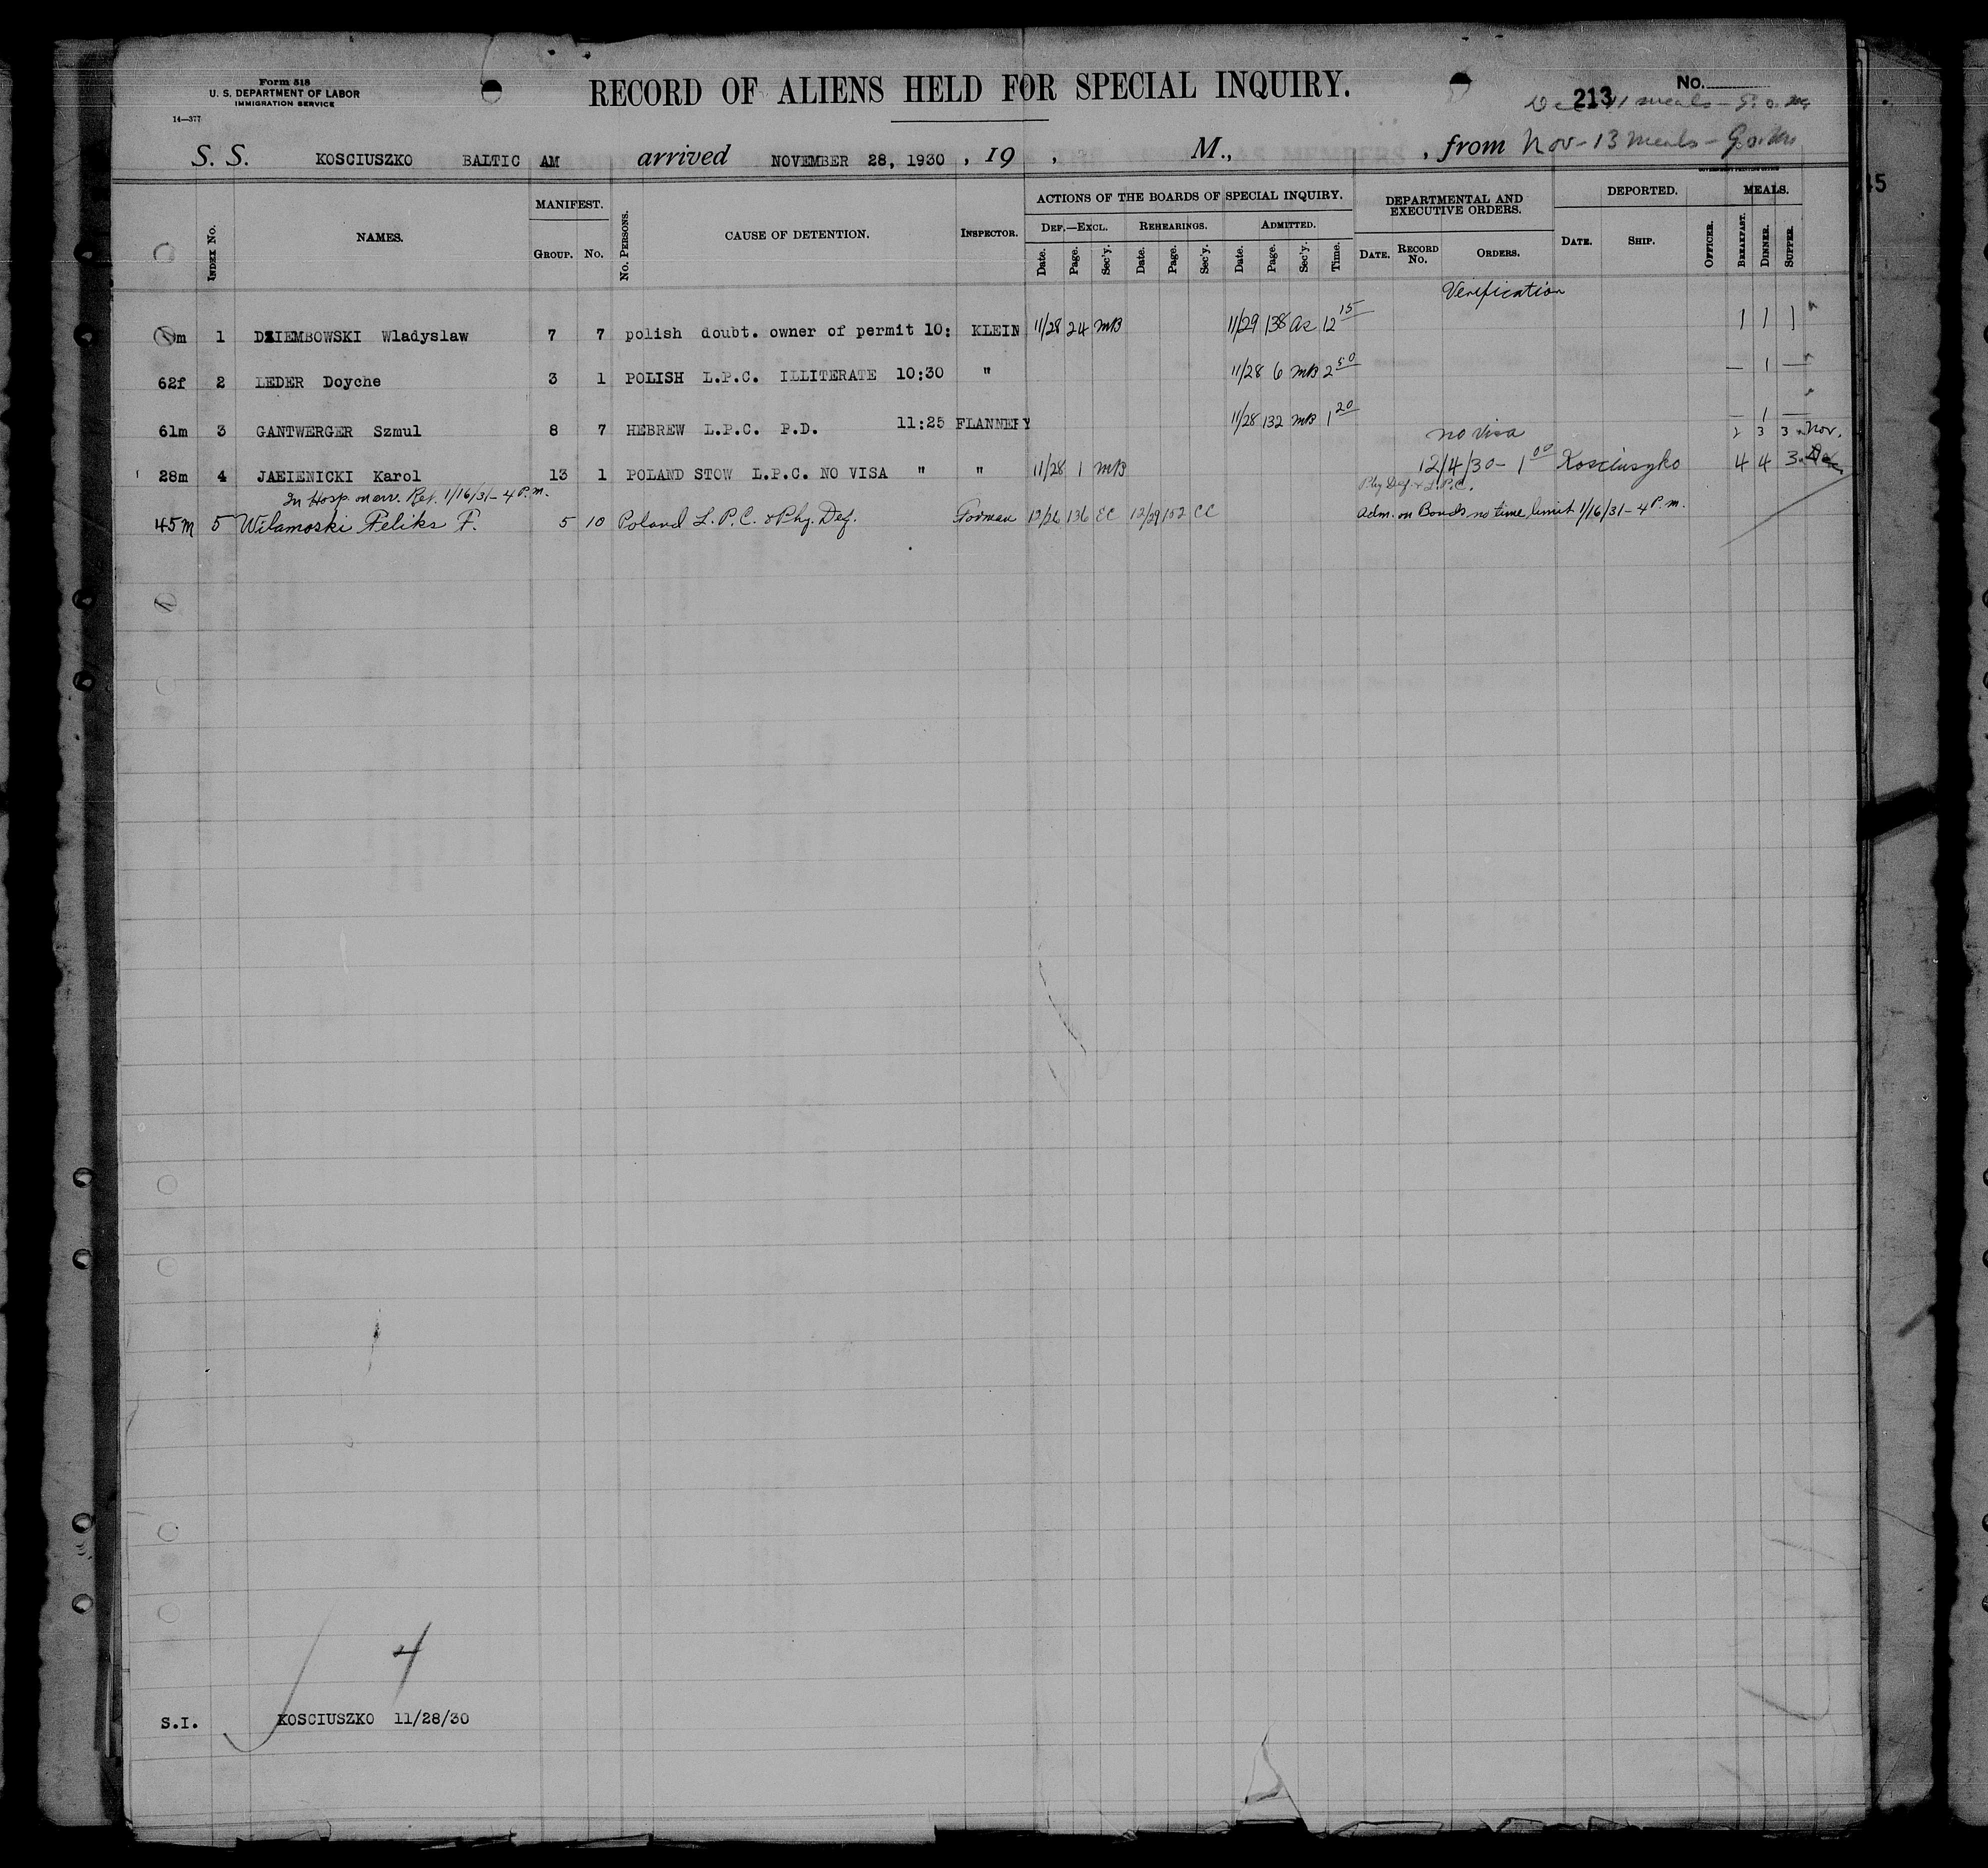 Form 518
U. S. DEPARTMENT OF LABOR
IMMIGRATION SERVICE
14—377
RECORD OF ALIENS HELD FOR SPECIAL INQUIRY.
No.
213
meals
S. S. KOSCIUSZKO BALTIC AM arrived NOVEMBER 28, 1930 , 19 , M., , from Nov-13 meals-
GOVERNMENT PRINTING OFFICE
45
INDEX NO. NAMES. MANIFEST. GROUP. NO. NO. PERSONS. CAUSE OF DETENTION. INSPECTOR. ACTIONS OF THE BOARDS OF SPECIAL INQUIRY. DEPARTMENTAL AND EXECUTIVE ORDERS. DEPORTED. MEALS.
DEF.—EXCL. REHEARINGS. ADMITTED.
Date. Page. Sec'y. Date. Page. Sec'y. Date. Page. Sec'y. Time. DATE. RECORD NO. ORDERS. DATE. SHIP. OFFICER. BREAKFAST. DINNER. SUPPER.
Verification
m 1 DZIEMBOWSKI Wladyslaw 7 7 polish doubt. owner of permit 10: KLEIN 11/28 24 MB 11/29 138 as 12 15 1 1 1
62f 2 LEDER Doyche 3 1 POLISH L.P.C. ILLITERATE 10:30 " 11/28 6 MB 2 50 — 1 —
61m 3 GANTWERGER Szmul 8 7 HEBREW L.P.C. P.D. 11:25 FLANNERY 11/28 132 MB 1 20 — 1 —
no visa 2 3 3 Nov.
28m 4 JAEIENICKI Karol 13 1 POLAND STOW L.P.C. NO VISA " " 11/28 1 MB 12/4/30- 1 00 Kosciuszko 4 4 3
In Hosp. on arr. Ret. 1/16/31-4 P.m. Phy Def & L.P.C.
45m 5 Wilamoski Feliks F. 5 10 Poland L.P.C. & Phy. Def. Fodman 12/26 136 EC 12/29 152 CC Adm. on Bonds no time limit 1/16/31-4 P.m.
4
S.I. KOSCIUSZKO 11/28/30